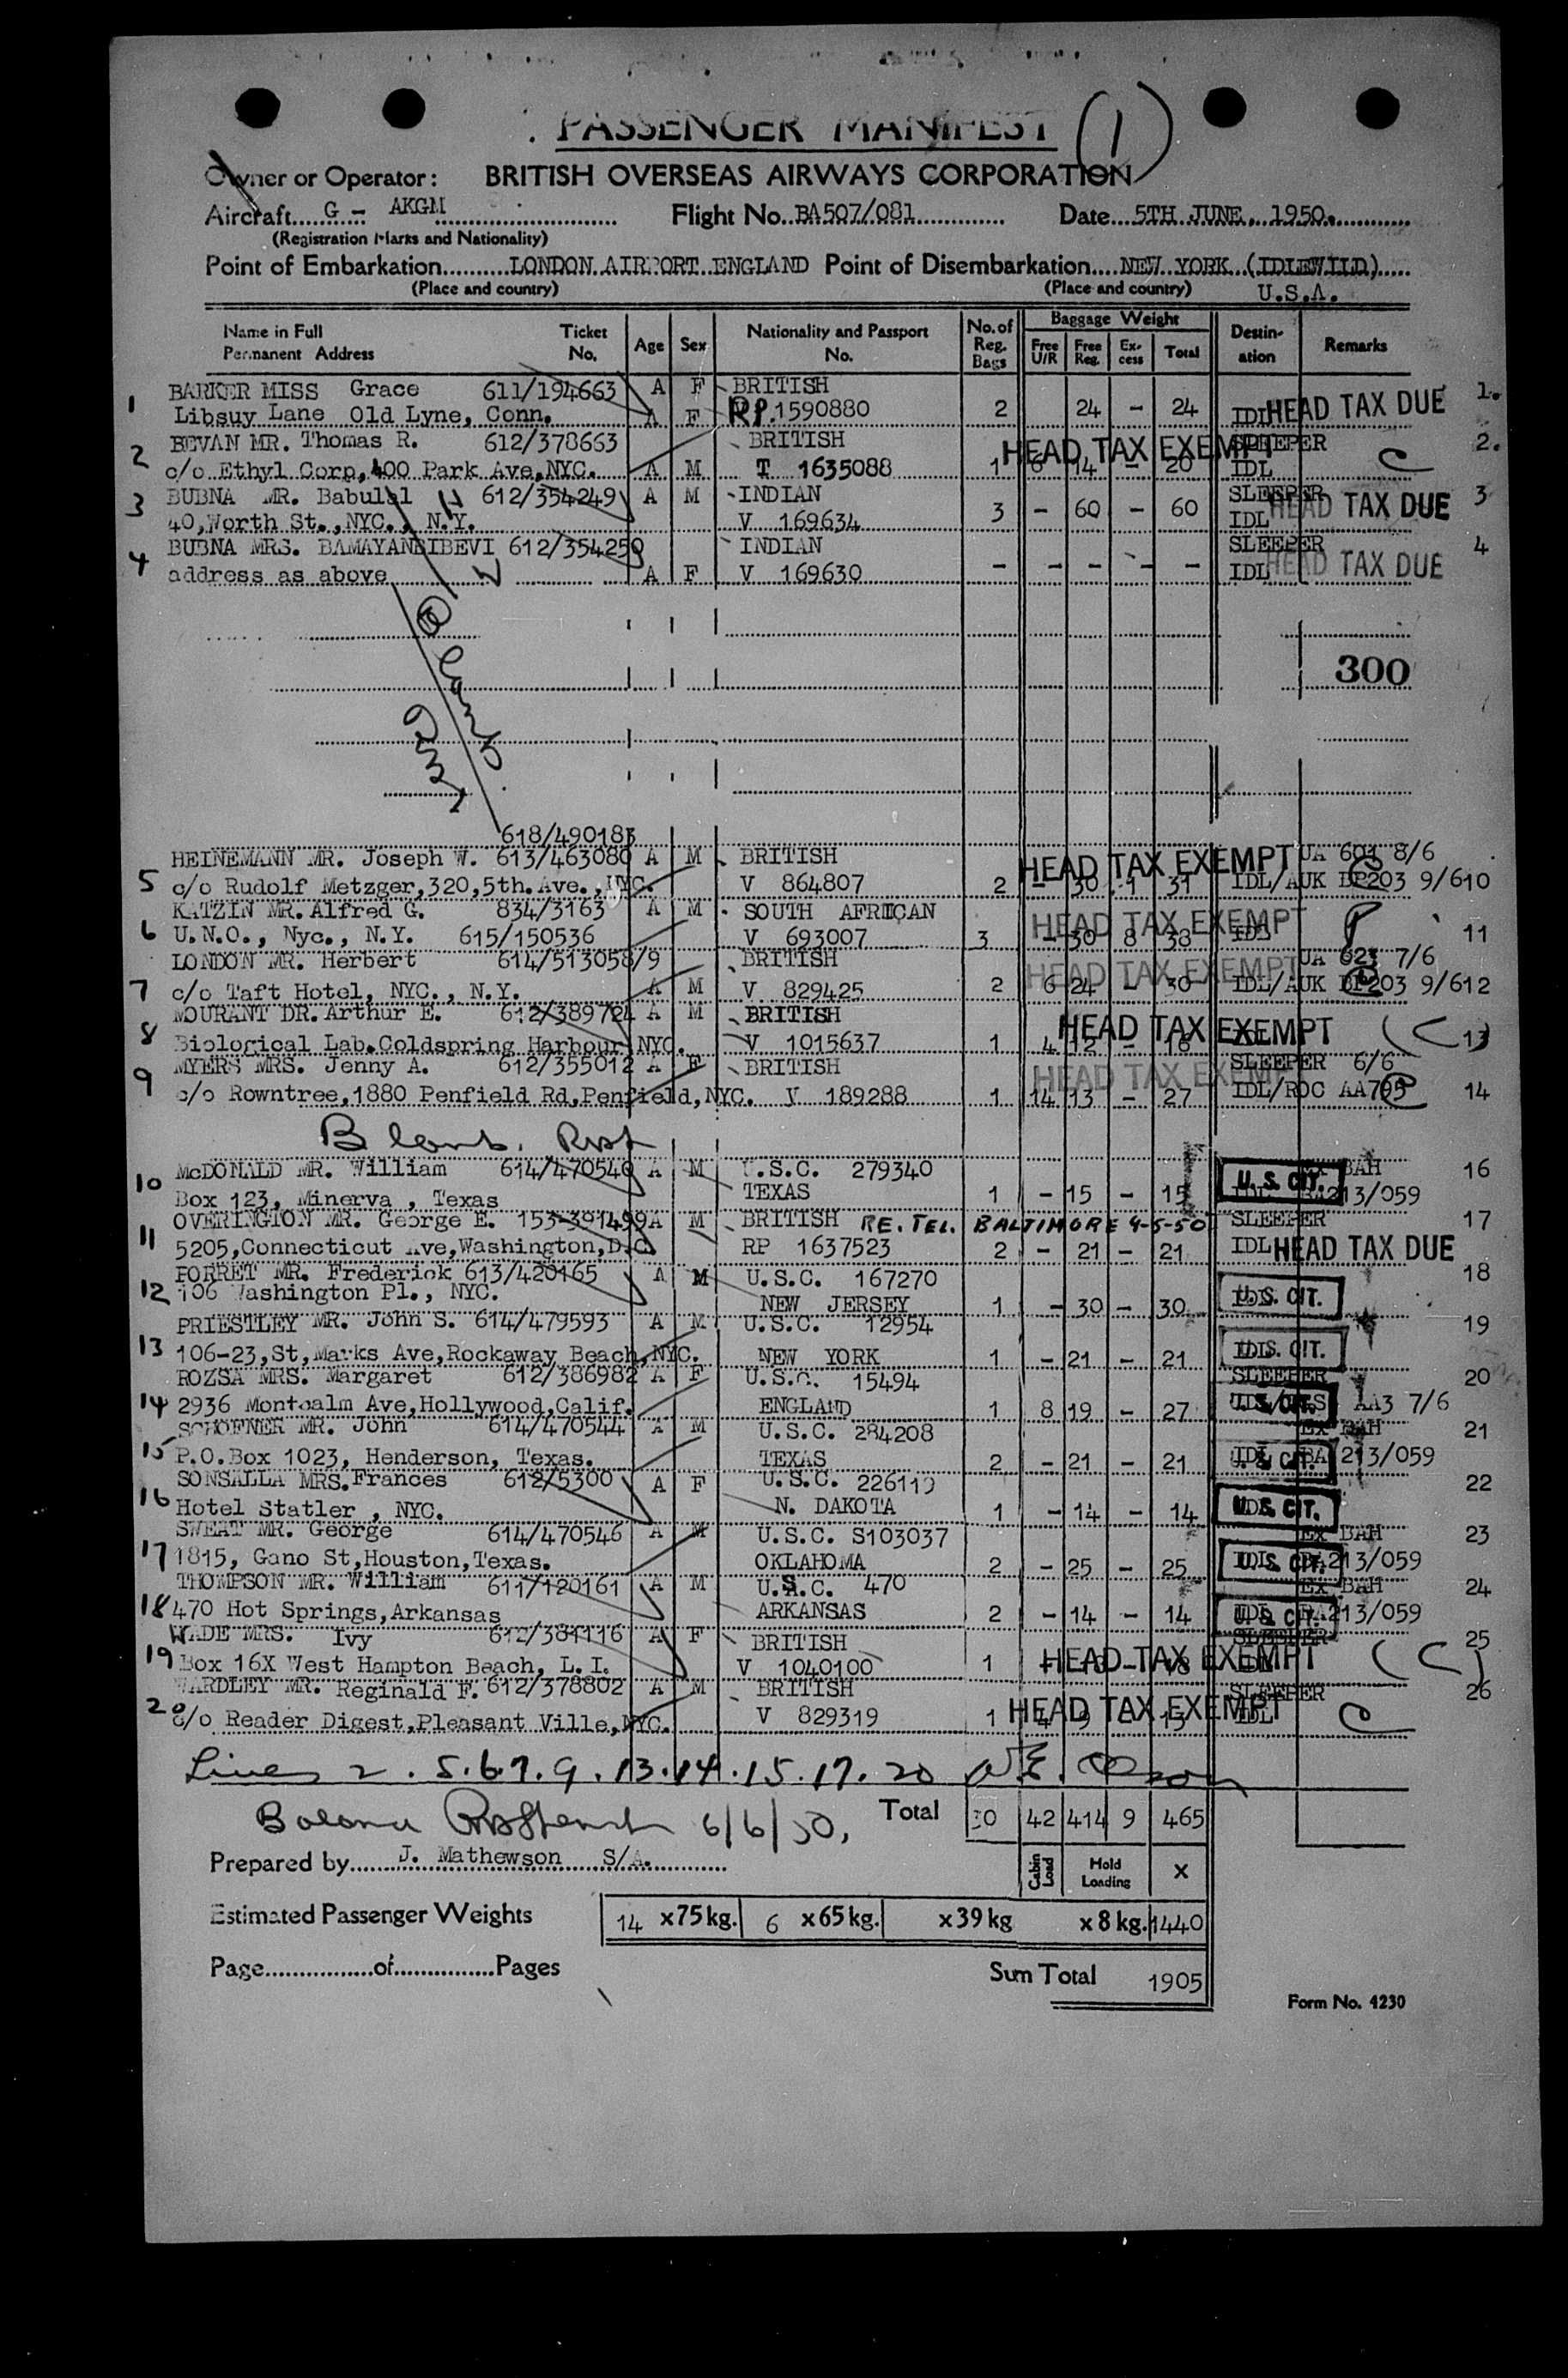 PASSENGER MANIFEST (1)
Owner or Operator: BRITISH OVERSEAS AIRWAYS CORPORATION
Aircraft G - AKGM Flight No. BA507/081 Date 5TH JUNE, 1950.
(Registration Marks and Nationality)
Point of Embarkation LONDON AIRPORT ENGLAND Point of Disembarkation NEW YORK (IDLEWILD)
(Place and country) (Place and country) U.S.A.
Name in Full Ticket Age Sex Nationality and Passport No. of Baggage Weight Destin- Remarks
Permanent Address No. No. Reg. Bags Free U/R Free Reg. Ex- cess Total ation
BARKER MISS Grace 611/194663 A F BRITISH 1.
1 Libsuy Lane Old Lyne, Conn. A F RP. 1590880 2 24 - 24 IDL HEAD TAX DUE
BEVAN MR. Thomas R. 612/378663 BRITISH HEAD TAX EXEMPT SLEEPER 2.
2 c/o Ethyl Corp, 400 Park Ave, NYC. A M T 1635088 1 6 14 - 20 IDL C
3 BUBNA MR. Babulal 612/354249 A M INDIAN SLEEPER 3
40, Worth St., NYC., N.Y. V 169634 3 - 60 - 60 IDL HEAD TAX DUE
BUBNA MRS. BAMAYANBIBEVI 612/354250 INDIAN SLEEPER 4
4 address as above A F V 169630 - - - - - IDL HEAD TAX DUE
300
618/490183
HEINEMANN MR. Joseph W. 613/463080 A M BRITISH HEAD TAX EXEMPT UA 601 8/6
5 c/o Rudolf Metzger, 320, 5th. Ave., NYC. V 864807 2 - 30 1 31 IDL/AUK BP203 9/6 10
KATZIN MR. Alfred G. 834/3163 A M SOUTH AFRICAN HEAD TAX EXEMPT
6 U.N.O., Nyc., N.Y. 615/150536 V 693007 3 - 30 8 38 IDL 11
LONDON MR. Herbert 614/513058/9 BRITISH HEAD TAX EXEMPT UA 623 7/6
7 c/o Taft Hotel, NYC., N.Y. A M V 829425 2 6 24 - 30 IDL/AUK BP203 9/6 12
MOURANT DR. Arthur E. 612/389724 A M BRITISH HEAD TAX EXEMPT (C)
8 Biological Lab. Coldspring Harbour NYC. V 1015637 1 4 12 - 16 13
MYERS MRS. Jenny A. 612/355012 A F BRITISH HEAD TAX EXEMPT SLEEPER 6/6
9 c/o Rowntree, 1880 Penfield Rd, Penfield, NYC. V 189288 1 14 13 - 27 IDL/ROC AA705 14
Blank.
McDONALD MR. William 614/470540 A M U.S.C. 279340 Ex BAH 16
10 Box 123, Minerva , Texas TEXAS 1 - 15 - 15 U.S. CIT. IDL BA213/059
OVERINGTON MR. George E. 153-391499 A M BRITISH RE. TEL. BALTIMORE 4-5-50 SLEEPER 17
11 5205, Connecticut Ave, Washington, D.C. RP 1637523 2 - 21 - 21 IDL HEAD TAX DUE
PORRET MR. Frederick 613/420165 A M U.S.C. 167270 18
12 106 Washington Pl., NYC. NEW JERSEY 1 - 30 - 30 IDL U.S. CIT.
PRIESTLEY MR. John S. 614/479593 A M U.S.C. 12954 19
13 106-23, St, Marks Ave, Rockaway Beach, NYC. NEW YORK 1 - 21 - 21 IDL U.S. CIT.
ROZSA MRS. Margaret 612/386982 A F U.S.C. 15494 SLEEPER 20
14 2936 Montcalm Ave, Hollywood, Calif. ENGLAND 1 8 19 - 27 U.S. CIT. AA3 7/6
SCHOFNER MR. John 614/470544 A M U.S.C. 284208 Ex BAH 21
15 P.O. Box 1023, Henderson, Texas. TEXAS 2 - 21 - 21 IDL U.S. CIT. BA213/059
SONSALLA MRS. Frances 612/5300 A F U.S.C. 226119 22
16 Hotel Statler , NYC. N. DAKOTA 1 - 14 - 14 IDL U.S. CIT.
SWEAT MR. George 614/470546 A M U.S.C. S103037 Ex BAH 23
17 1815, Gano St, Houston, Texas. OKLAHOMA 2 - 25 - 25 IDL U.S. CIT. BA213/059
THOMPSON MR. William 611/120161 A M U.S.C. 470 Ex BAH 24
18 470 Hot Springs, Arkansas ARKANSAS 2 - 14 - 14 IDL U.S. CIT. BA213/059
WADE MRS. Ivy 612/381116 A F BRITISH SLEEPER 25
19 Box 16X West Hampton Beach, L.I. V 1040100 1 HEAD TAX EXEMPT (C)
WARDLEY MR. Reginald F. 612/378802 A M BRITISH SLEEPER 26
20 c/o Reader Digest, Pleasant Ville, NYC. V 829319 1 4 9 - 13 HEAD TAX EXEMPT IDL C
Lines 2. 5. 6. 7. 9. 13. 14. 15. 17. 20
6/6/50, Total 30 42 414 9 465
Prepared by J. Mathewson S/A. Cabin Load Hold Loading X
Estimated Passenger Weights 14 x 75 kg. 6 x 65 kg. x 39 kg x 8 kg. 1440
Page of Pages Sum Total 1905
Form No. 4230